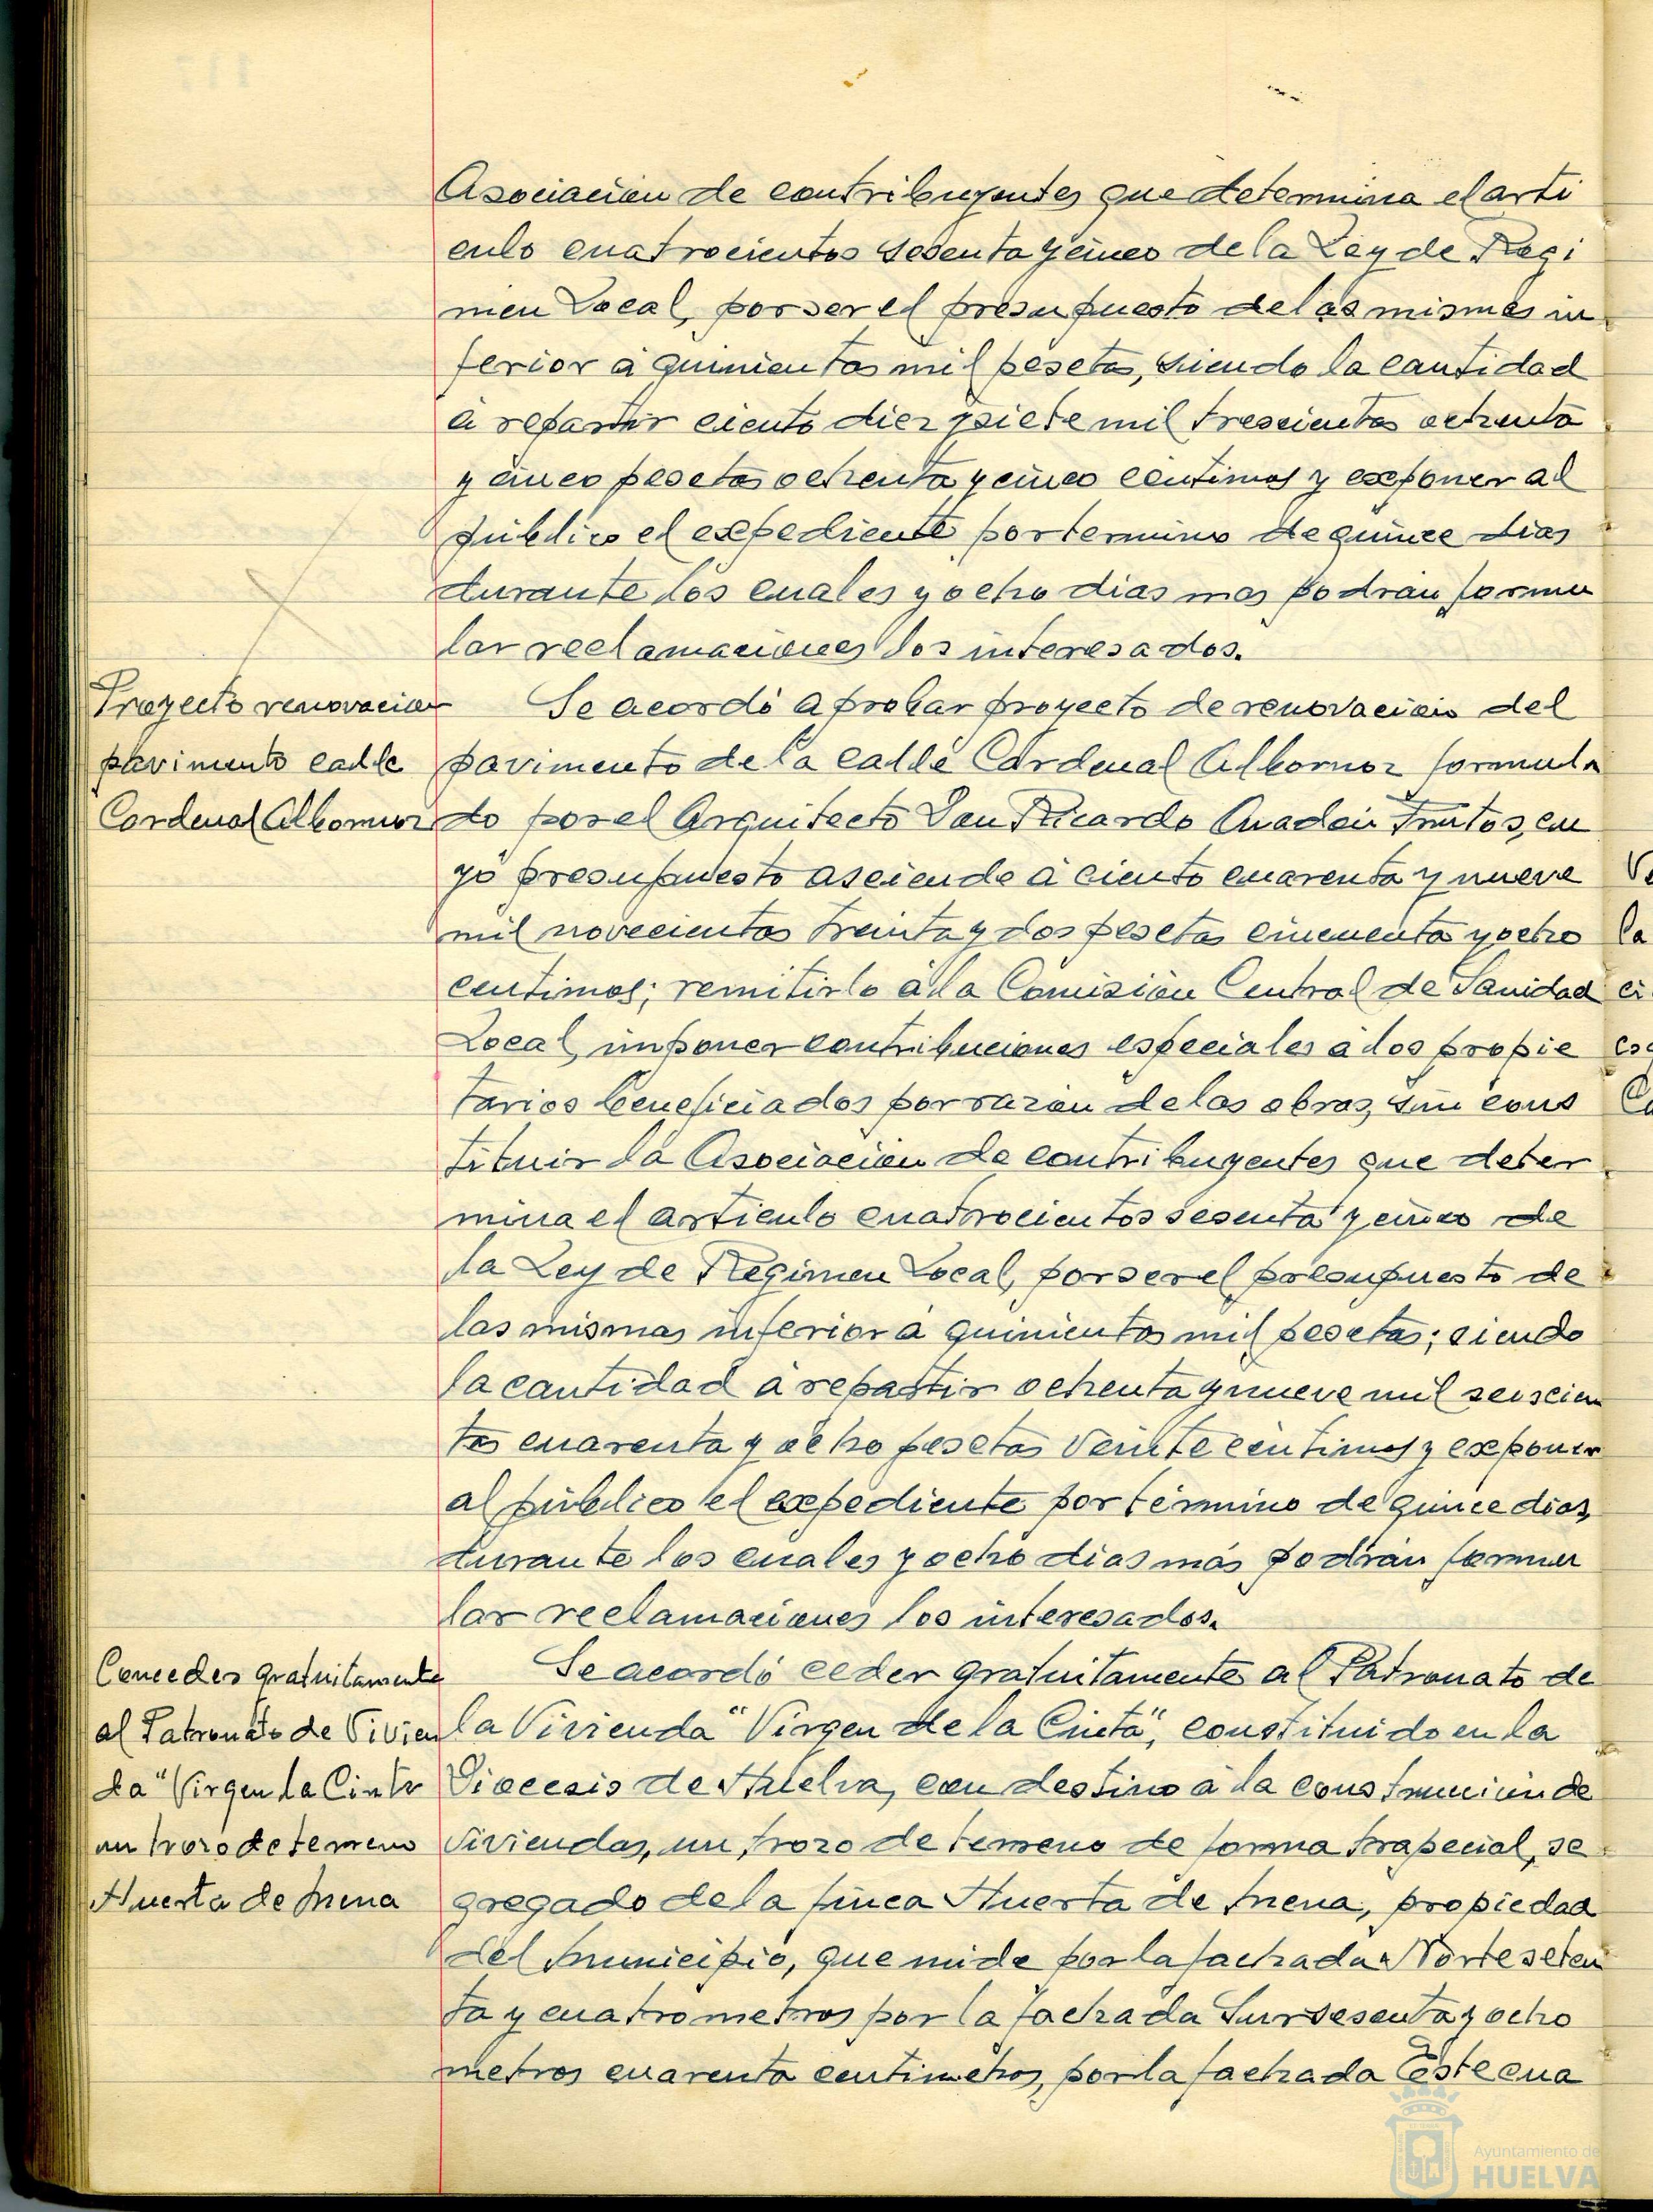 Asociacion de contribuyentes que determina el arti
culo cuatrocientos sesenta y cinco de la Ley de Regi
men Local, por ser el presupuesto de las mismas in
ferior á quinientas mil pesetas, siendo la cantidad
á repartir ciento diez y siete mil trescientas ochenta
y cinco pesetas ochenta y cinco centimos y exponer al
público el expediente por termino de quince dias
durante los cuales y ocho dias mas podrán formu
lar reclamaciones los interesados.
Proyecto renovacion
pavimento calle
Cardenal Albornoz
Se acordó aprobar proyecto de renovación del
pavimento de la calle Cardenal Albornoz formula
do por el Arquitecto Don Ricardo Anadón Frutos, cu
yo presupuesto asciende á ciento cuarenta y nueve
mil novecientas treinta y dos pesetas cincuenta y ocho
centimos; remitirlo á la Comisión Central de Sanidad
Local, imponer contribuciones especiales á los propie
tarios beneficiados por razon de las obras, sin cons
tituir la Asociacion de contribuyentes que deter
mina el articulo cuatrocientos sesenta y cinco de
la Ley de Regimen Local, por ser el presupuesto de
las mismas inferior á quinientas mil pesetas; siendo
la cantidad á repartir ochenta y nueve mil seiscien
tas cuarenta y ocho pesetas veinte centimos y exponer
al público el expediente por término de quince dias,
durante los cuales y ocho dias más podrán formu
lar reclamaciones los interesados.
Conceder gratuitamente
al Patronato de Vivien
da "Virgen la Cinta
un trozo de terreno
Huerta de Mena
Se acordó ceder gratuitamente al Patronato de
la Vivienda "Virgen de la Cinta", constituido en la
Diocesis de Huelva, con destino á la construcción de
viviendas, un trozo de terreno de forma trapecial, se
gregado de la finca Huerta de Mena, propiedad
del Municipio, que mide por la fachada Norte seten
ta y cuatro metros por la fachada Sur sesenta y ocho
metros cuarenta centimetros, por la fachada Este cua
Ayuntamiento de
HUELVA